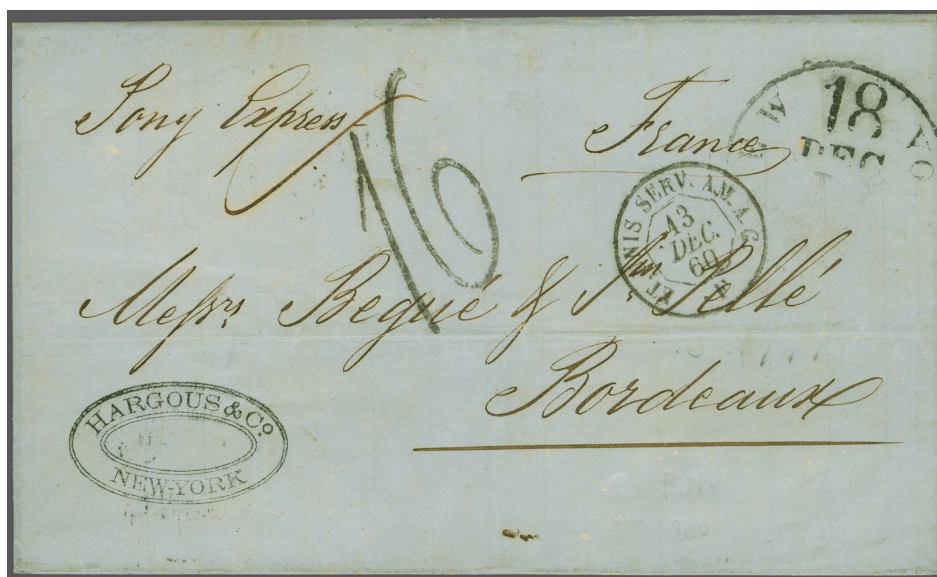 Pony Express
France
16
W YO
18
DEC
ET. UNIS SERV. AM. A. C.
13
DEC.
60
Messrs Begué & Pellé
Bordeaux
HARGOUS & Co.
NEW-YORK